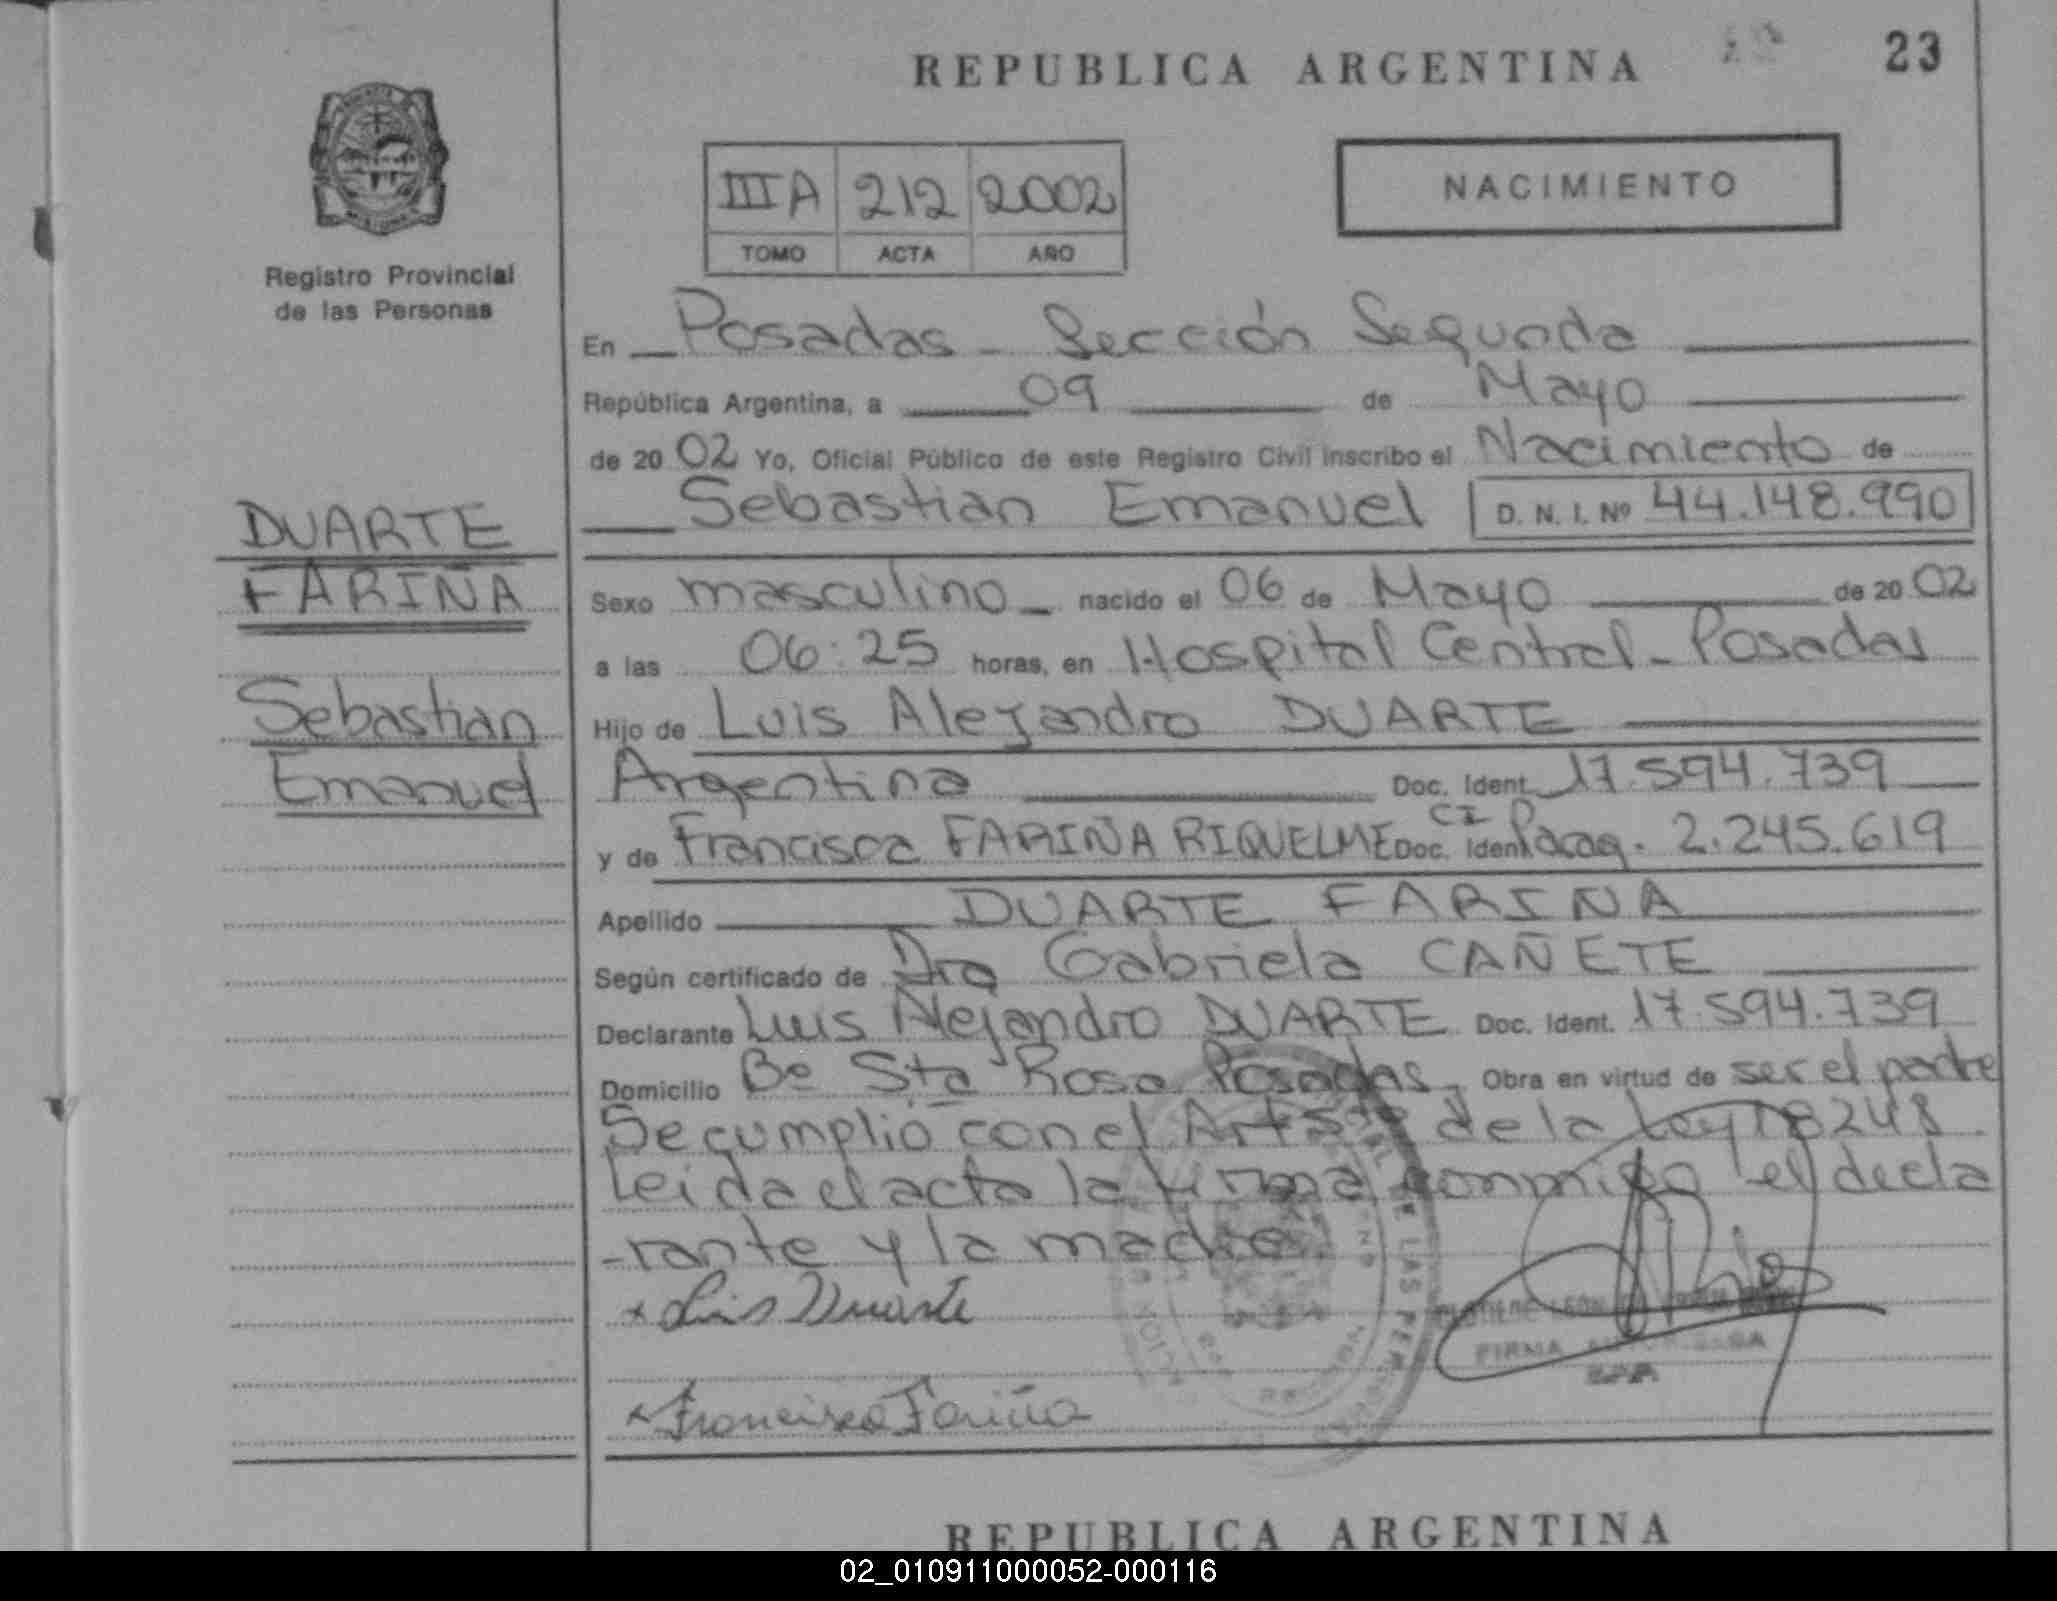 REPUBLICA ARGENTINA
23
Registro Provincial
de las Personas
III A 212 2002
TOMO ACTA AÑO
NACIMIENTO
En Posadas - Sección Segunda
República Argentina, a 09 de Mayo
de 20 02 Yo, Oficial Público de este Registro Civil inscribo el Nacimiento de
Sebastian Emanuel D. N. I. Nº 44.148.990
DUARTE
FARIÑA
Sebastian
Emanuel
Sexo masculino nacido el 06 de Mayo de 20 02
a las 06:25 horas, en Hospital Central - Posadas
Hijo de Luis Alejandro DUARTE
Argentina Doc. Ident. 17.594.739
y de Francisca FARIÑA RIQUELME Doc. Ident. CI Parag. 2.245.619
Apellido DUARTE FARIÑA
Según certificado de Dra Gabriela CAÑETE
Declarante Luis Alejandro DUARTE Doc. Ident. 17.594.739
Domicilio Bº Sta Rosa Posadas, Obra en virtud de ser el padre
Se cumplió con el Art 5 de la Ley 18248.
Leida el acta la firma conmigo el decla
-rante y la madre.
x Luis Duarte
FIRMA
x Francisca Fariña
REPUBLICA ARGENTINA
02_010911000052-000116